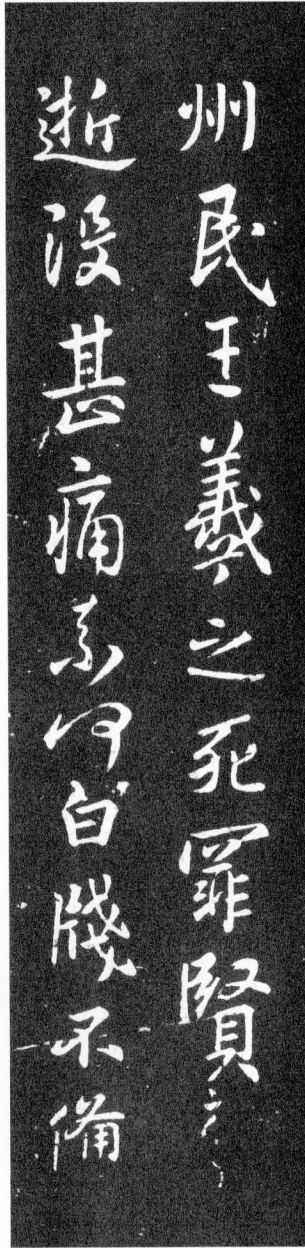 州民王羲之死罪賢
逝没甚痛奈何白牋不備